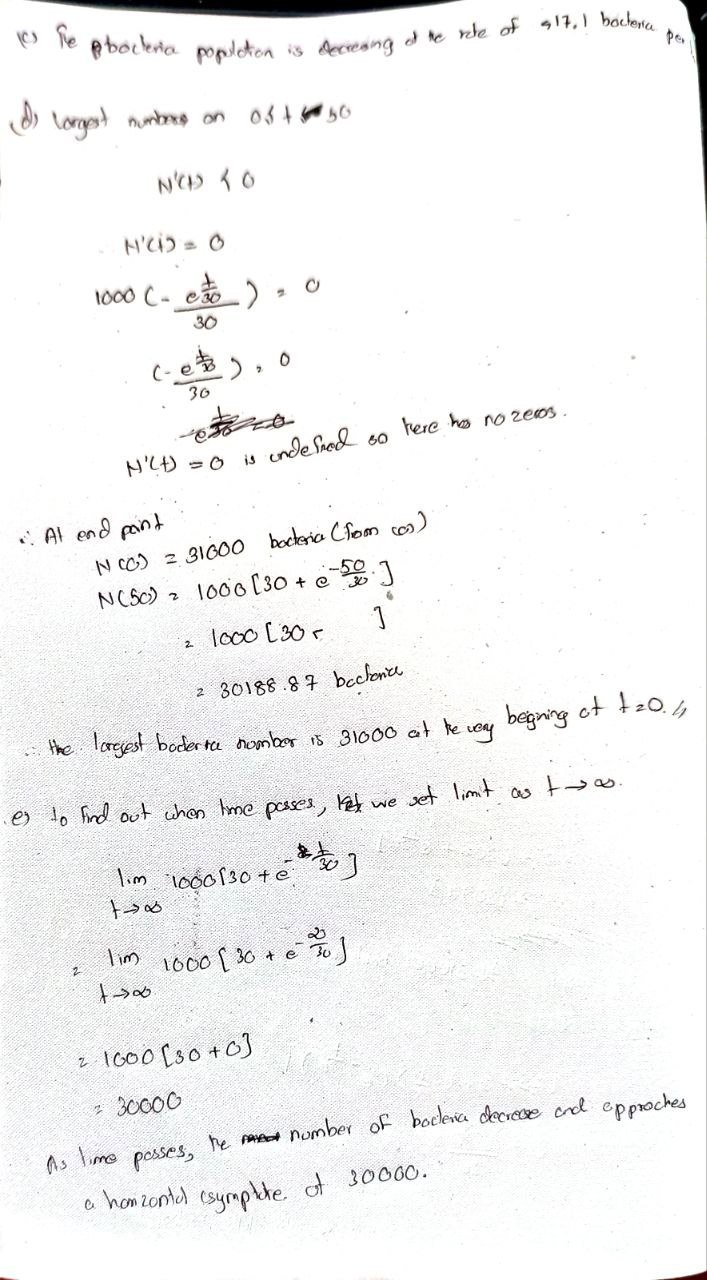 (c) The bacteria population is decreasing at the rate of 917.1 bacteria per
(d) largest numbers on 0≤t≤50
N'(t) < 0
N'(t) = 0
1000 (- e^(t/30) / 30) = 0
(- e^(t/30) / 30) = 0
N'(t) = 0 is undefined so here has no zeros.
∴ At end point
N(0) = 31000 bacteria (from (a))
N(50) = 1000 [30 + e^(-50/30)]
= 1000 [30 + ]
= 30188.87 bacteria
∴ the largest bacteria number is 31000 at the very beigning at t=0.
e) to find out when time passes, we set limit as t → ∞.
lim 1000 [30 + e^(-t/30)]
t→∞
= lim 1000 [30 + e^(-∞/30)]
t→∞
= 1000 [30 + 0]
= 30000
As time passes, the number of bacteria decrease and approches
a horizontal asymptote at 30000.